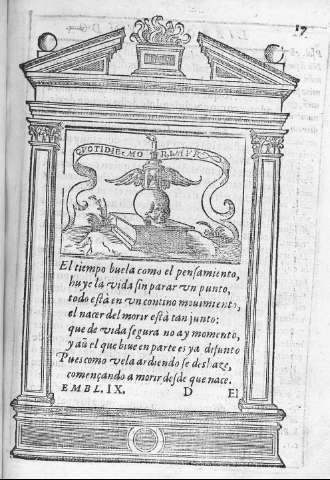 17
QVOTIDIE MORIMVR
El tiempo buela como el pensamiento,
huye la vida sin parar vn punto,
todo està en vn contino mouimiento,
el nacer del morir està tan junto:
que de vida segura no ay momento,
y aũ el que biue en parte es ya difunto
Pues como vela ardiendo se deshaze,
començando a morir desde que nace.
EMBL. IX. D El